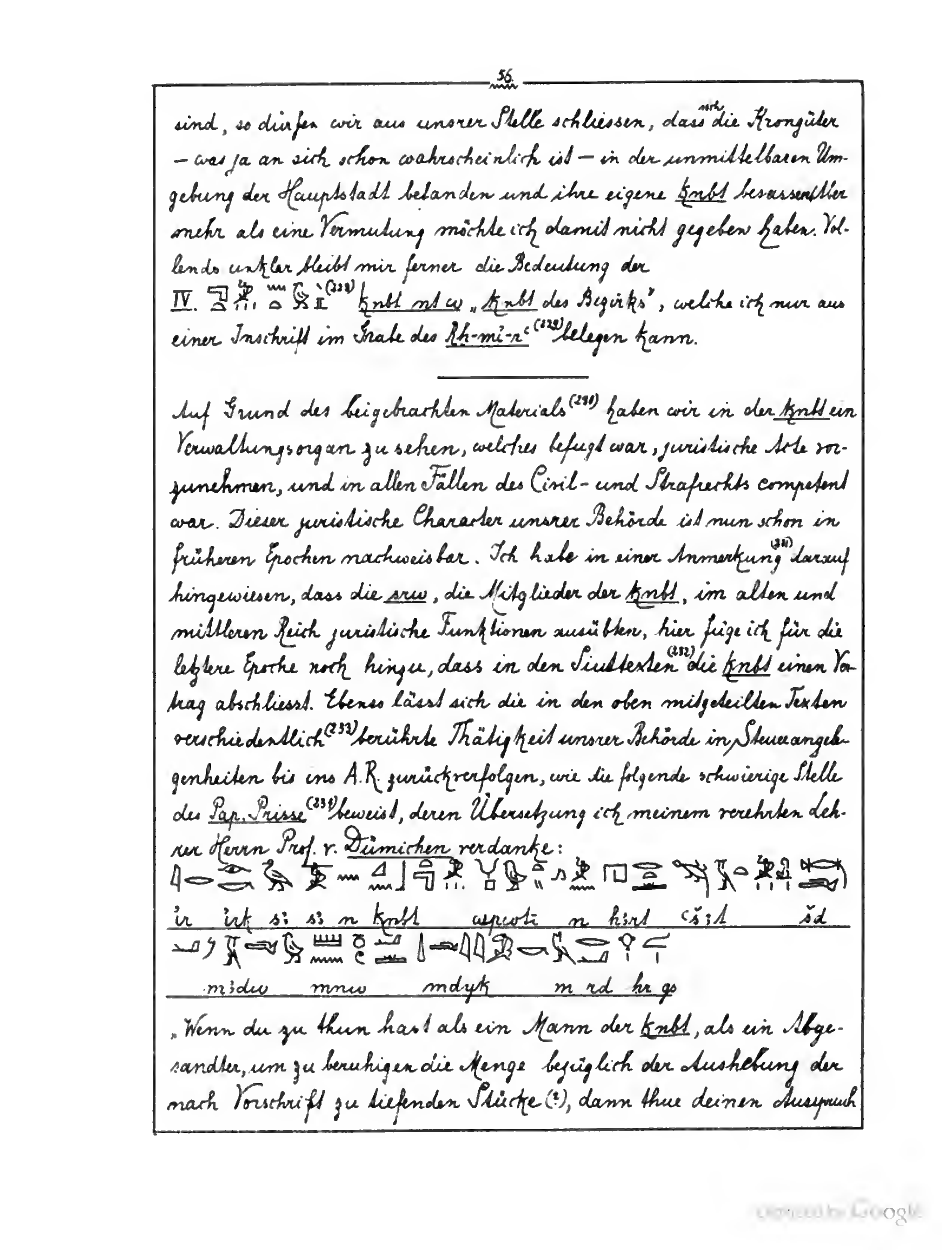 56.
sind, so dürfen wir aus unsrer Stelle schliessen, dass sich die Krongüter
– was ja an sich schon wahrscheinlich ist – in der unmittelbaren Um-
gebung der Hauptstadt befanden und ihre eigene ḳnbt besassen. Aber
mehr als eine Vermutung möchte ich damit nicht gegeben haben. Vol-
lends unklar bleibt mir ferner die Bedeutung der
IV. (228) ḳnbt nt w „ḳnbt des Bezirks", welche ich nur aus
einer Inschrift im Grabe des Rḫ-mi-rꜥ (229) belegen kann.
Auf Grund des beigebrachten Materials (230) haben wir in der ḳnbt ein
Verwaltungsorgan zu sehen, welches befugt war, juristische Acte vor-
zunehmen, und in allen Fällen des Civil- und Strafrechts competent
war. Dieser juristische Character unsrer Behörde ist nun schon in
früheren Epochen nachweisbar. Ich habe in einer Anmerkung (231) darauf
hingewiesen, dass die srw, die Mitglieder der ḳnbt, im alten und
mittleren Reich juristische Funktionen ausübten, hier füge ich für die
letztere Epoche noch hinzu, dass in den Siuttexten (232) die ḳnbt einen Ver-
trag abschliesst. Ebenso lässt sich die in den oben mitgeteilten Texten
verschiedentlich (233) berührte Thätigkeit unsrer Behörde in Steuerangele-
genheiten bis ins A.R. zurückverfolgen, wie die folgende schwierige Stelle
des Pap. Prisse (234) beweist, deren Übersetzung ich meinem verehrten Leh-
rer Herrn Prof. v. Dümichen verdanke:
ir irk sꜣ sꜣ n ḳnbt wpwti n hꜣrt ꜥšꜣt šd
mꜣdw mnw mdyk m rd ḥr gs
„Wenn du zu thun hast als ein Mann der ḳnbt, als ein Abge-
sandter, um zu beruhigen die Menge bezüglich der Aushebung der
nach Vorschrift zu liefenden Stücke (?), dann thue deinen Ausspruch
Digitized by Google